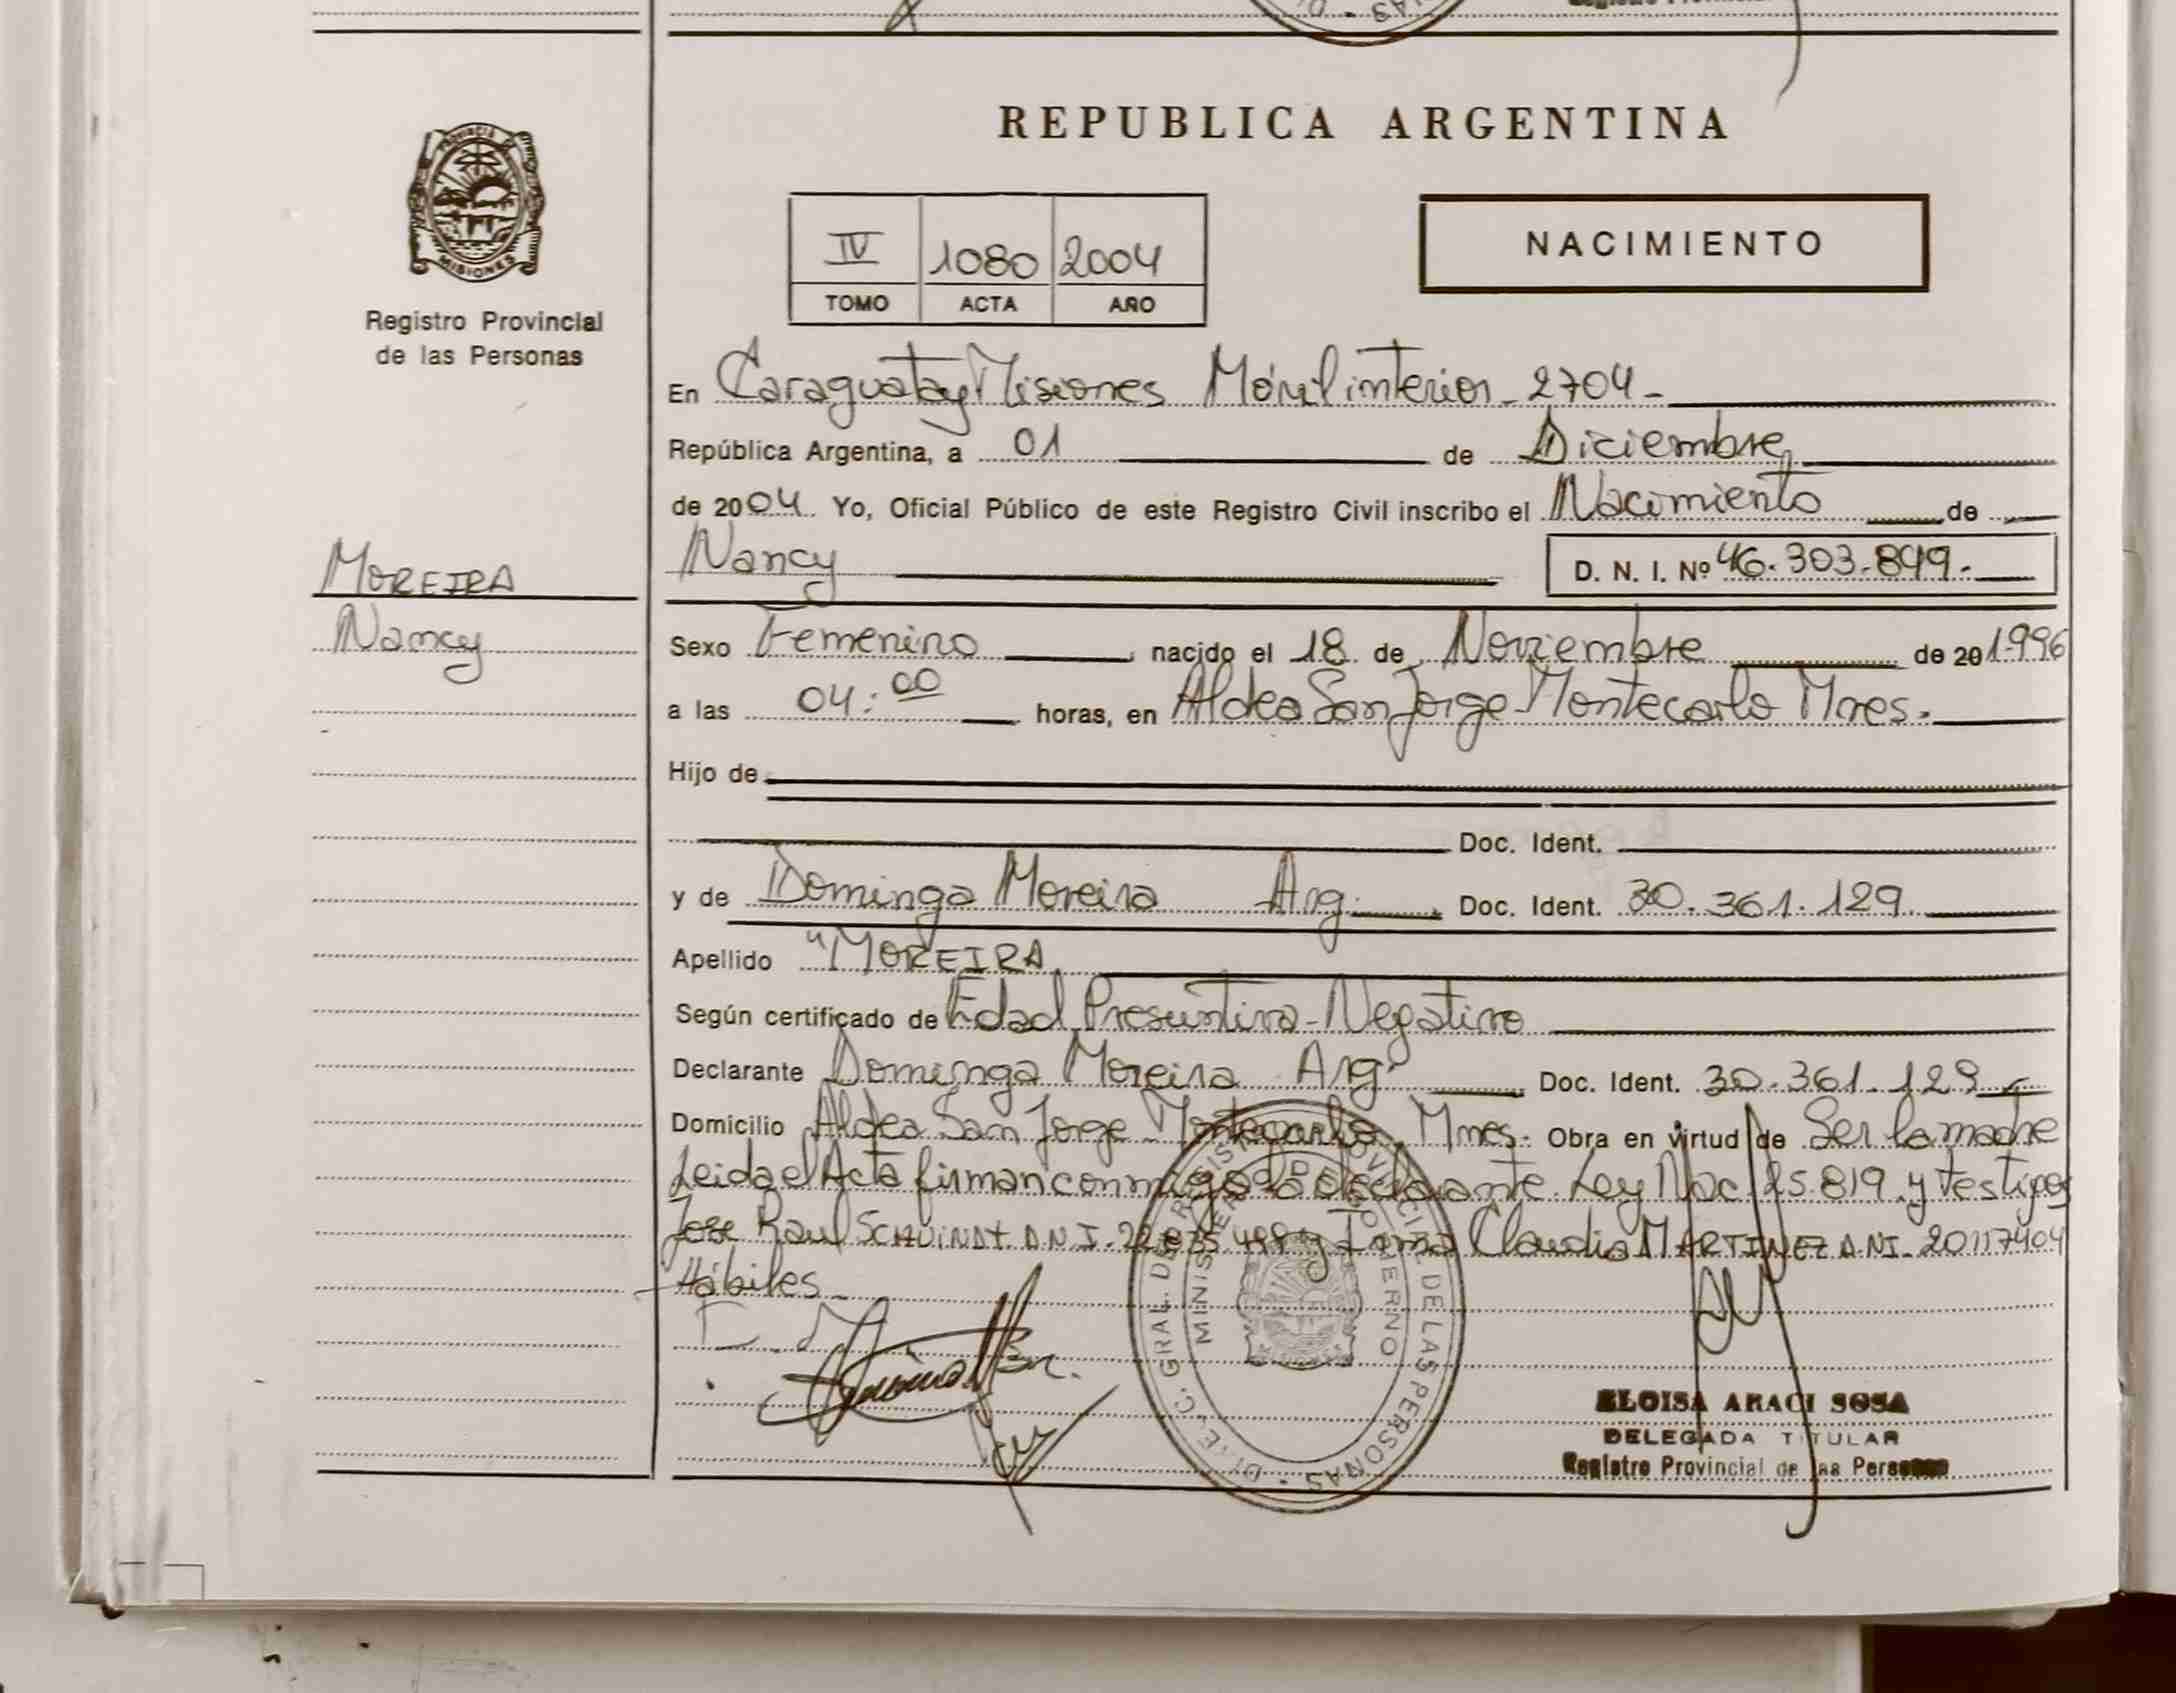 REPUBLICA ARGENTINA
PROVINCIA
MISIONES
Registro Provincial
de las Personas
IV 1080 2004
TOMO ACTA AÑO
NACIMIENTO
En Caraguatay Misiones Móvil interior - 2704 -
República Argentina, a 01 de Diciembre
de 2004 Yo, Oficial Público de este Registro Civil inscribo el Nacimiento de
MOREIRA
Nancy
Nancy D. N. I. Nº 46.303.849.
Sexo Femenino nacido el 18 de Noviembre de 20 1996
a las 04:00 horas, en Aldea San Jorge - Montecarlo Mnes.
Hijo de
Doc. Ident.
y de Dominga Moreira Arg. Doc. Ident. 30.361.129.
Apellido "MOREIRA
Según certificado de Edad Presuntiva - Negativo
Declarante Dominga Moreira Arg. Doc. Ident. 30.361.129
Domicilio Aldea San Jorge - Montecarlo, Mnes. Obra en virtud de Ser la madre
Leida el Acta firman conmigo la declarante Ley Nac 25.819 y testigos
Jose Raul D.N.I. y Claudia MARTINEZ D.NI. 20117404
Hábiles
DIREC. GRAL. DE REGISTRO PROVINCIAL DE LAS PERSONAS
MINISTERIO DE GOBIERNO
ELOISA ARACI SOSA
DELEGADA TITULAR
Registro Provincial de las Personas